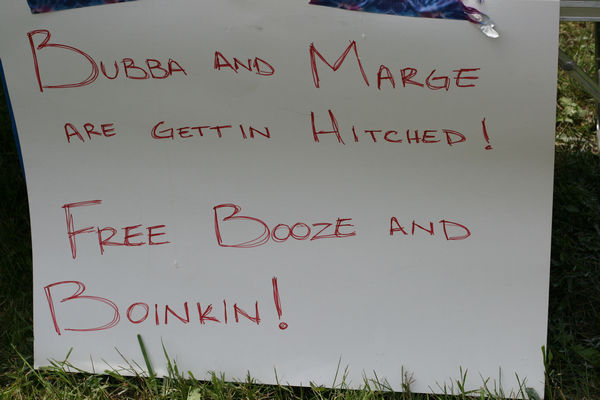 Bubba and Marge
are Gettin Hitched!
Free Booze and
Boinkin!